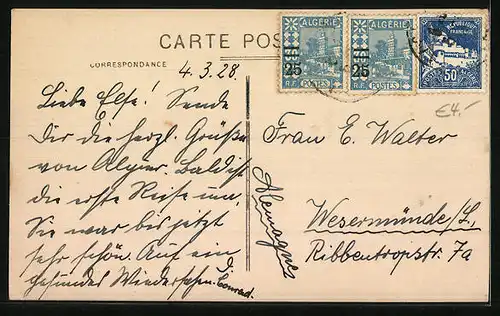 CARTE POS
CORRESPONDANCE
ALGÉRIE
25
R.F. POSTES
ALGÉRIE
25
R.F. POSTES
RÉPUBLIQUE
FRANÇAISE
50
€4.-
4.3.28.
Liebe Else! Sende
Dir die herzl. Grüße
von Algier. Bald ist
die erste Reise um,
Sie war bis jetzt
sehr schön. Auf ein
gesundes Wiedersehen.
D. Conrad.
Frau E. Walter
Alemagne
Wesermünde/L.,
Ribbentropstr. 7a